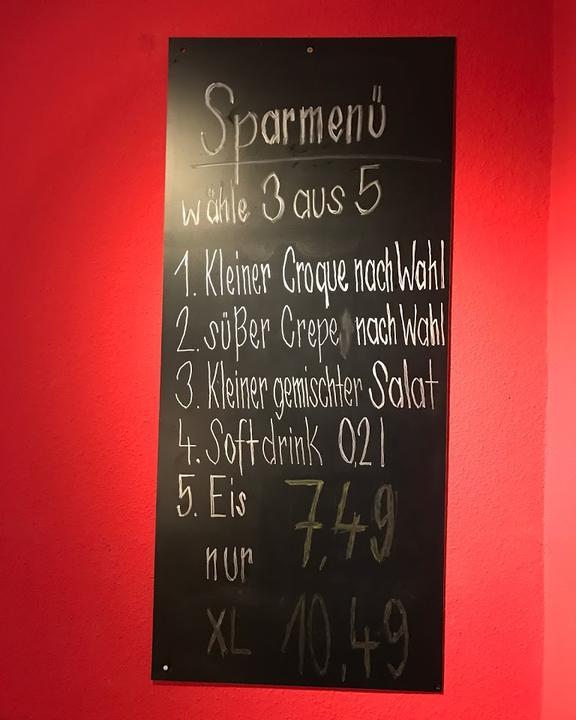 Sparmenü
wähle 3 aus 5
1. Kleiner Croque nach Wahl
2. süßer Crepe nach Wahl
3. Kleiner gemischter Salat
4. Softdrink 0,2 l
5. Eis
nur 7,49
XL 10,49